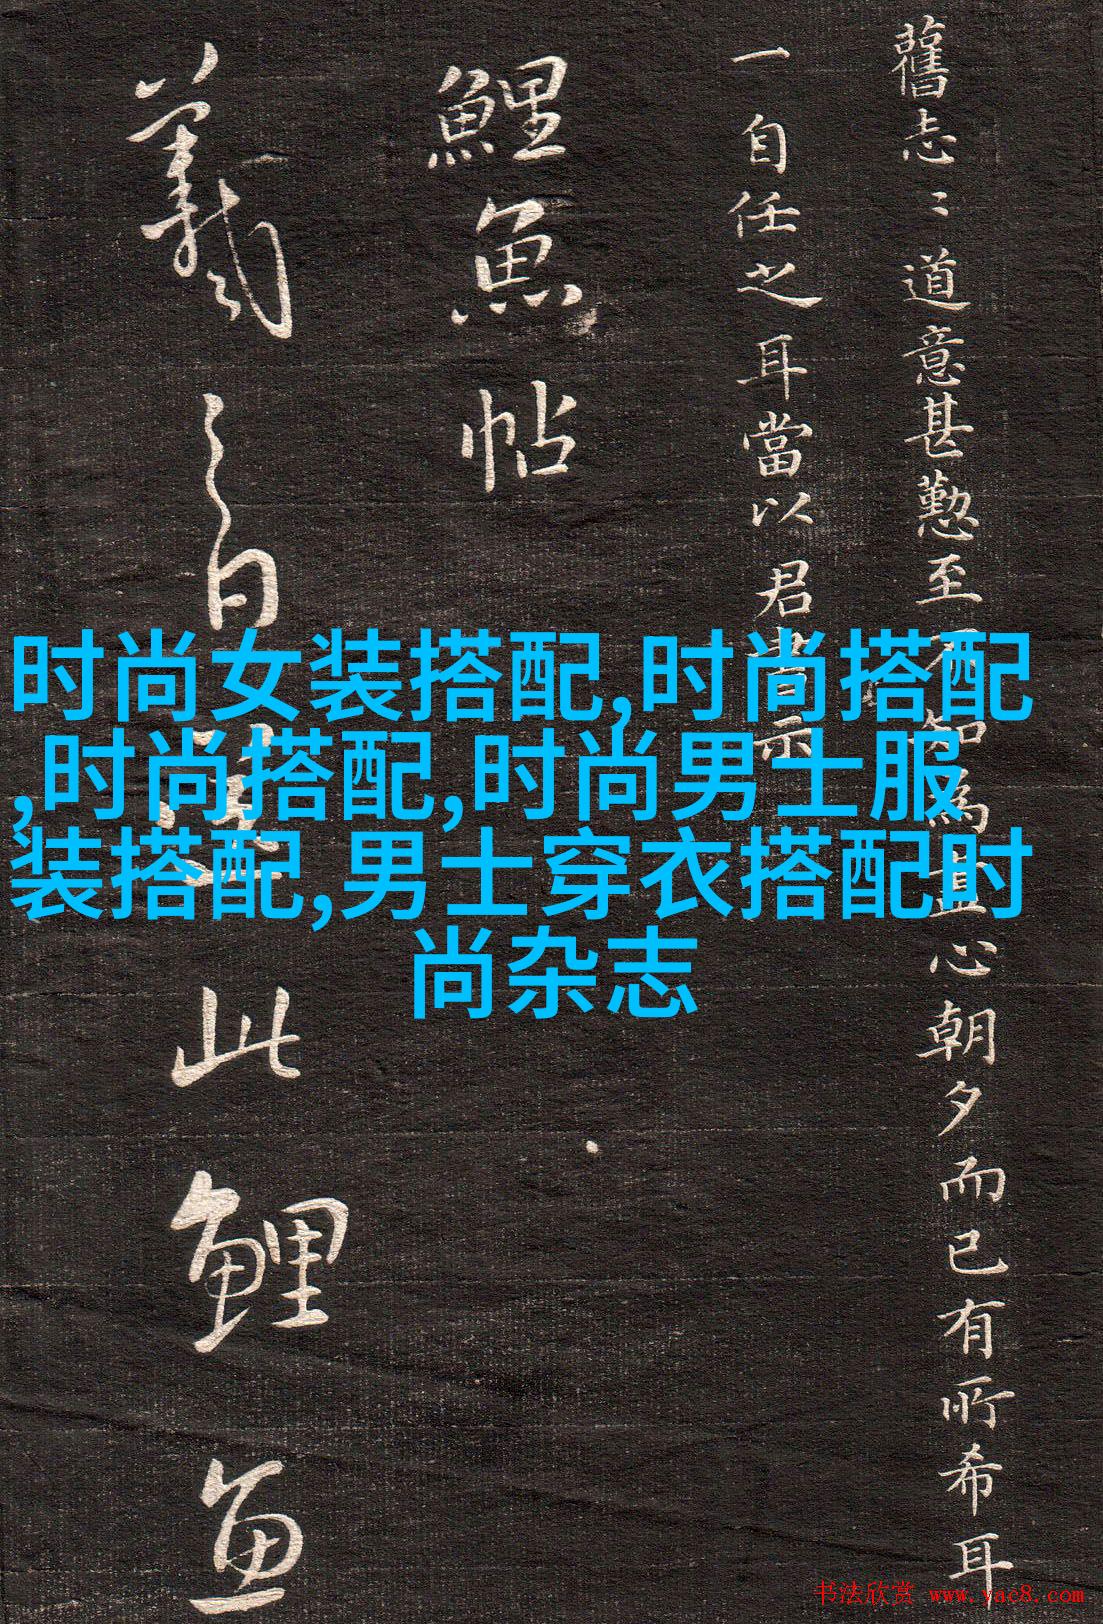 舊志〻道意甚懃至不知為益心朝夕而已有所希耳
一自任之耳當以君書示
鯉魚帖
羲之白送此鯉魚
时尚女装搭配,时尚搭配
,时尚搭配,时尚男士服
装搭配,男士穿衣搭配时
尚杂志
书法欣赏 www.yac8.com